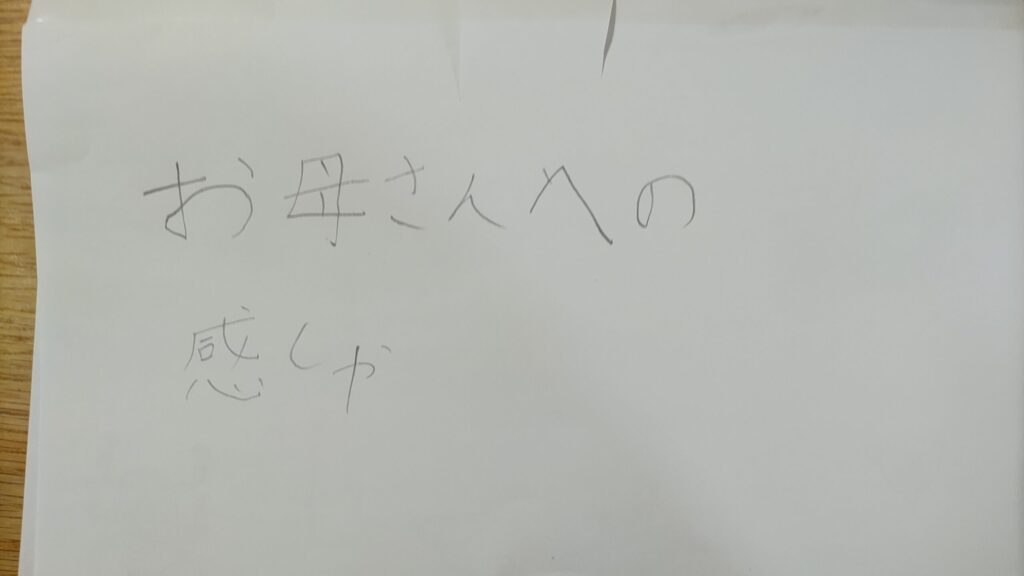 お母さんへの
感しゃ